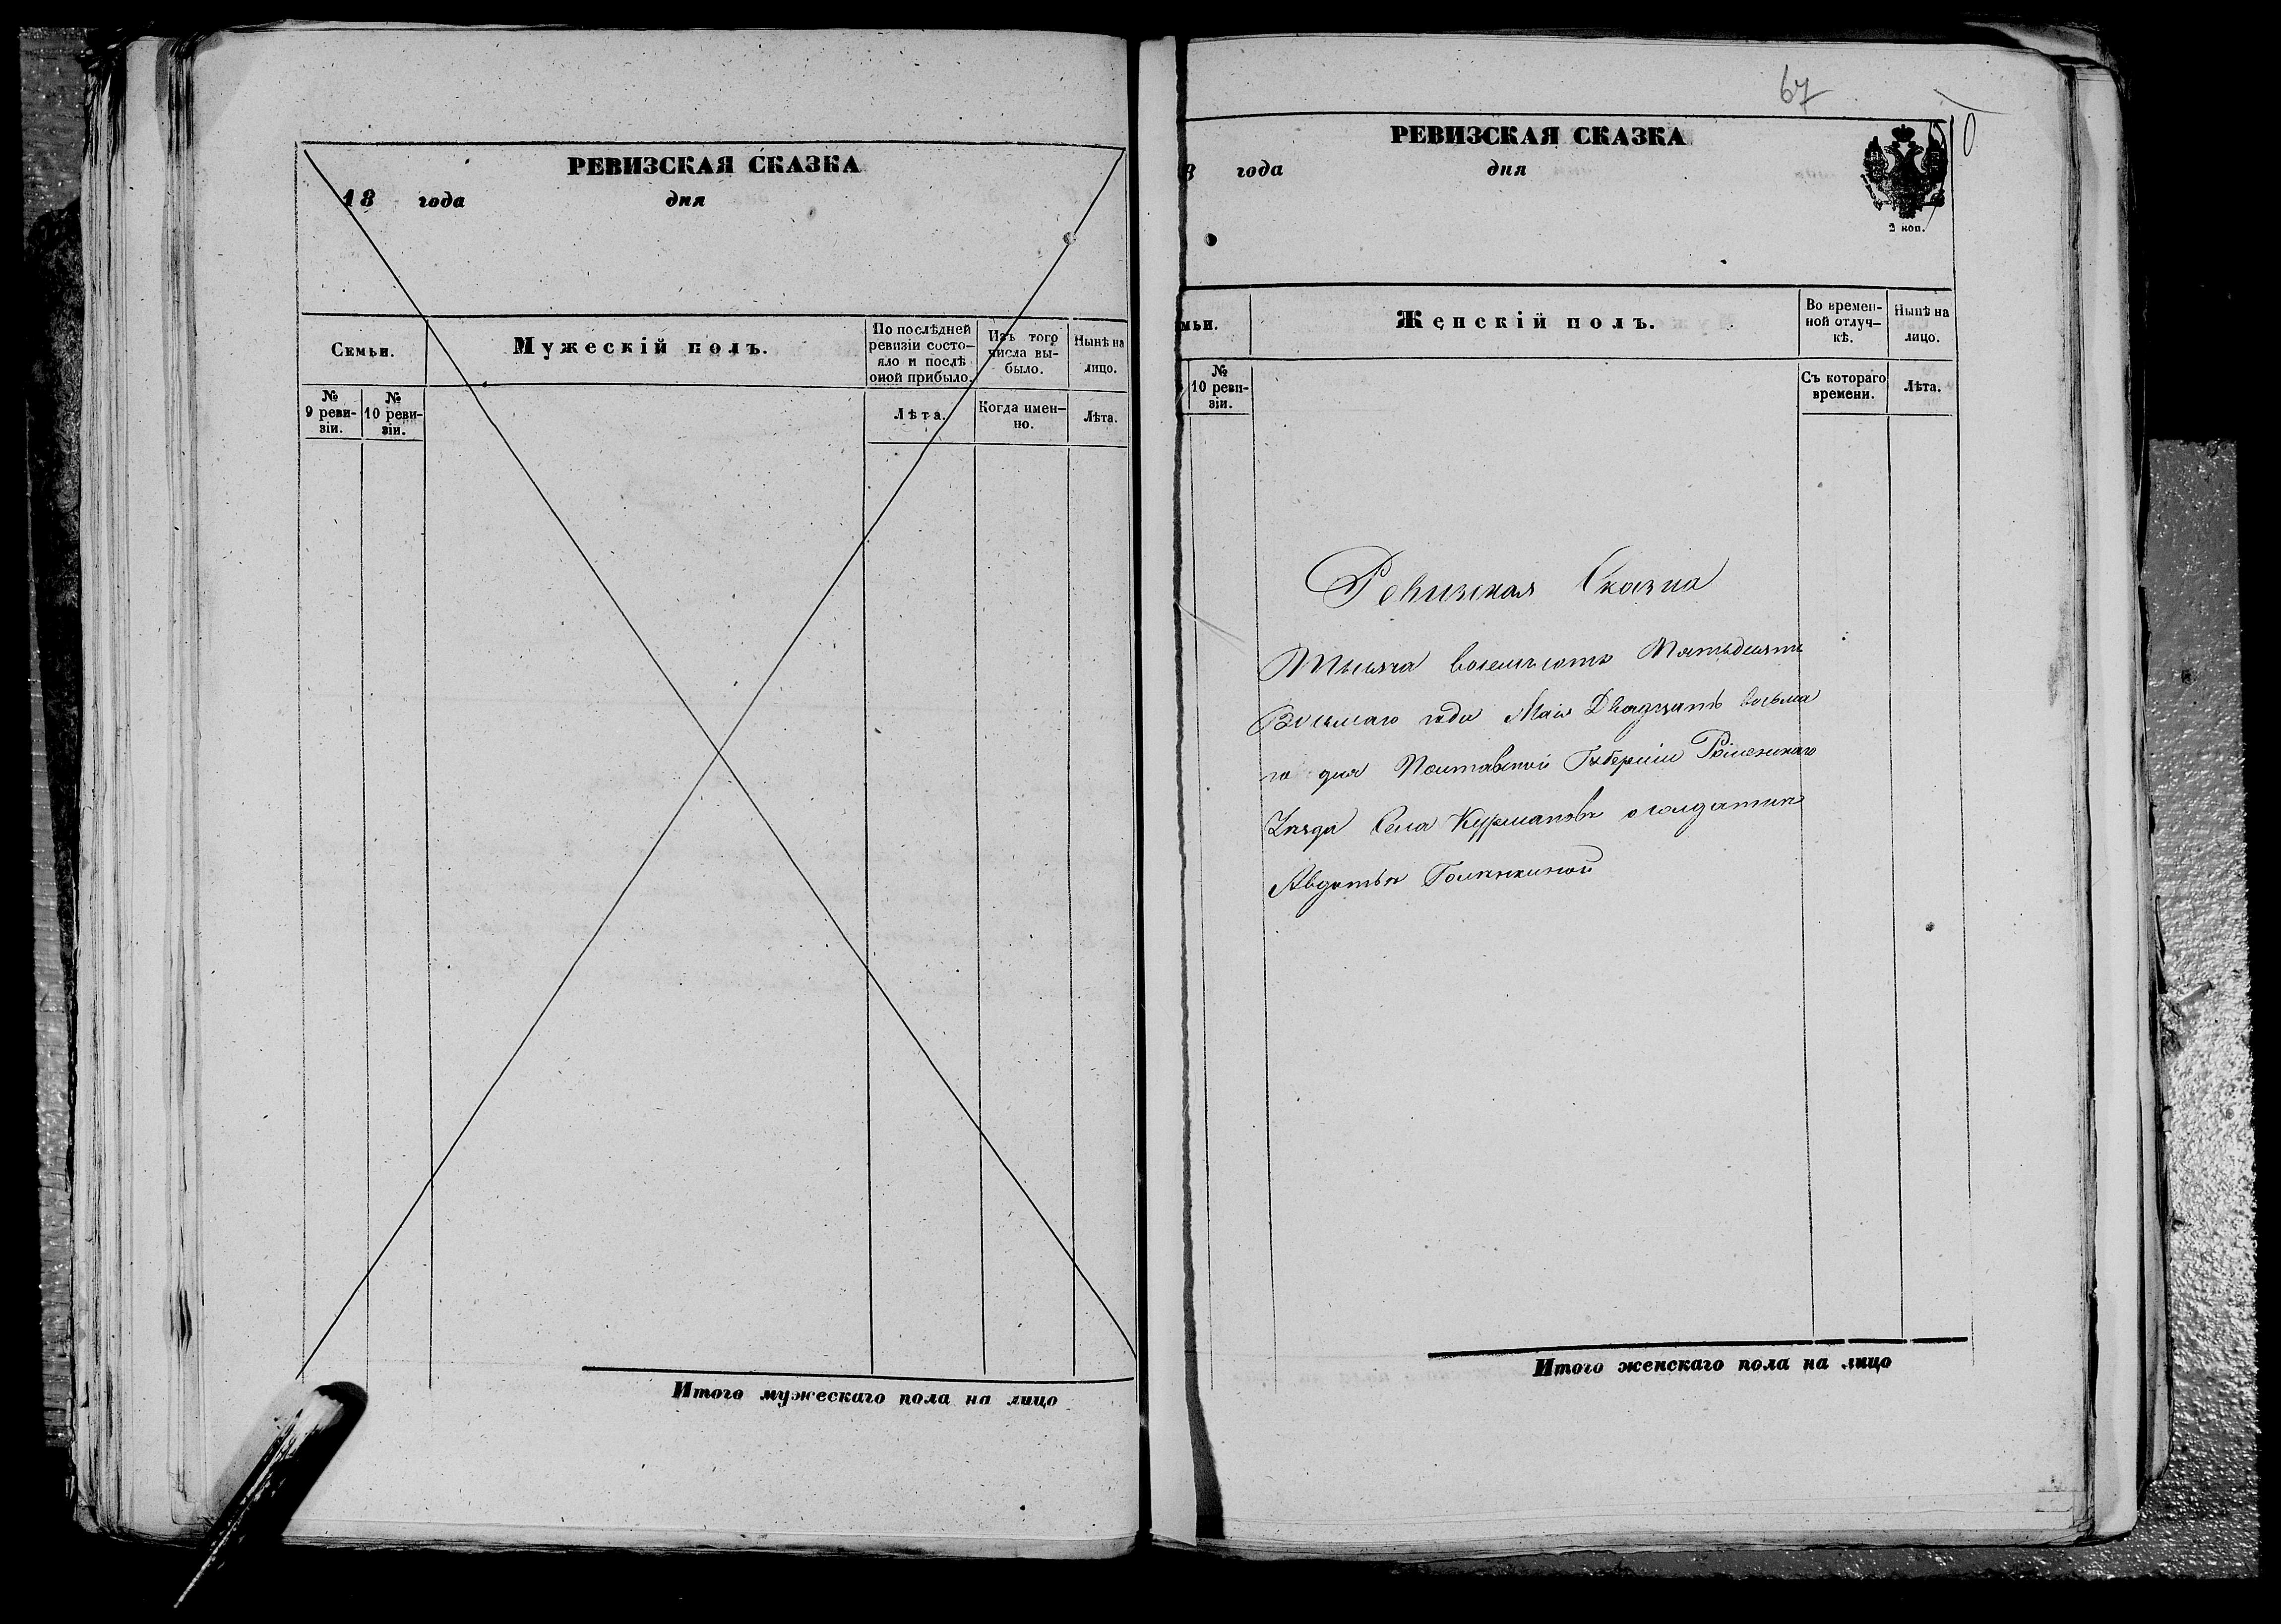 РЕВИЗСКАЯ СКАЗКА
18 года дня
Семьи.
Мужескій полъ.
По послѣдней
ревизіи состо-
яло и послѣ
оной прибыло.
Изъ того
числа вы-
было.
Нынѣ на
лицо.
№
9 реви-
зіи.
№
10 реви-
зіи.
Лѣта.
Когда имен-
но.
Лѣта.
Итого мужескаго пола на лицо
67
РЕВИЗСКАЯ СКАЗКА
8 года дня
2 коп.
мьи.
Женскій полъ.
Во времен-
ной отлуч-
кѣ.
Нынѣ на
лицо.
№
10 реви-
зіи.
Съ котораго
времени.
Лѣта.
Ревизская Сказка
Тысяча восемьсотъ Пятьдесятъ
Восьмаго года Маія Двадцать восьма
го дня Полтавской Губерніи Роменскаго
Уезда Села Курмановъ о солдатки
Авдотьи
Итого женскаго пола на лицо